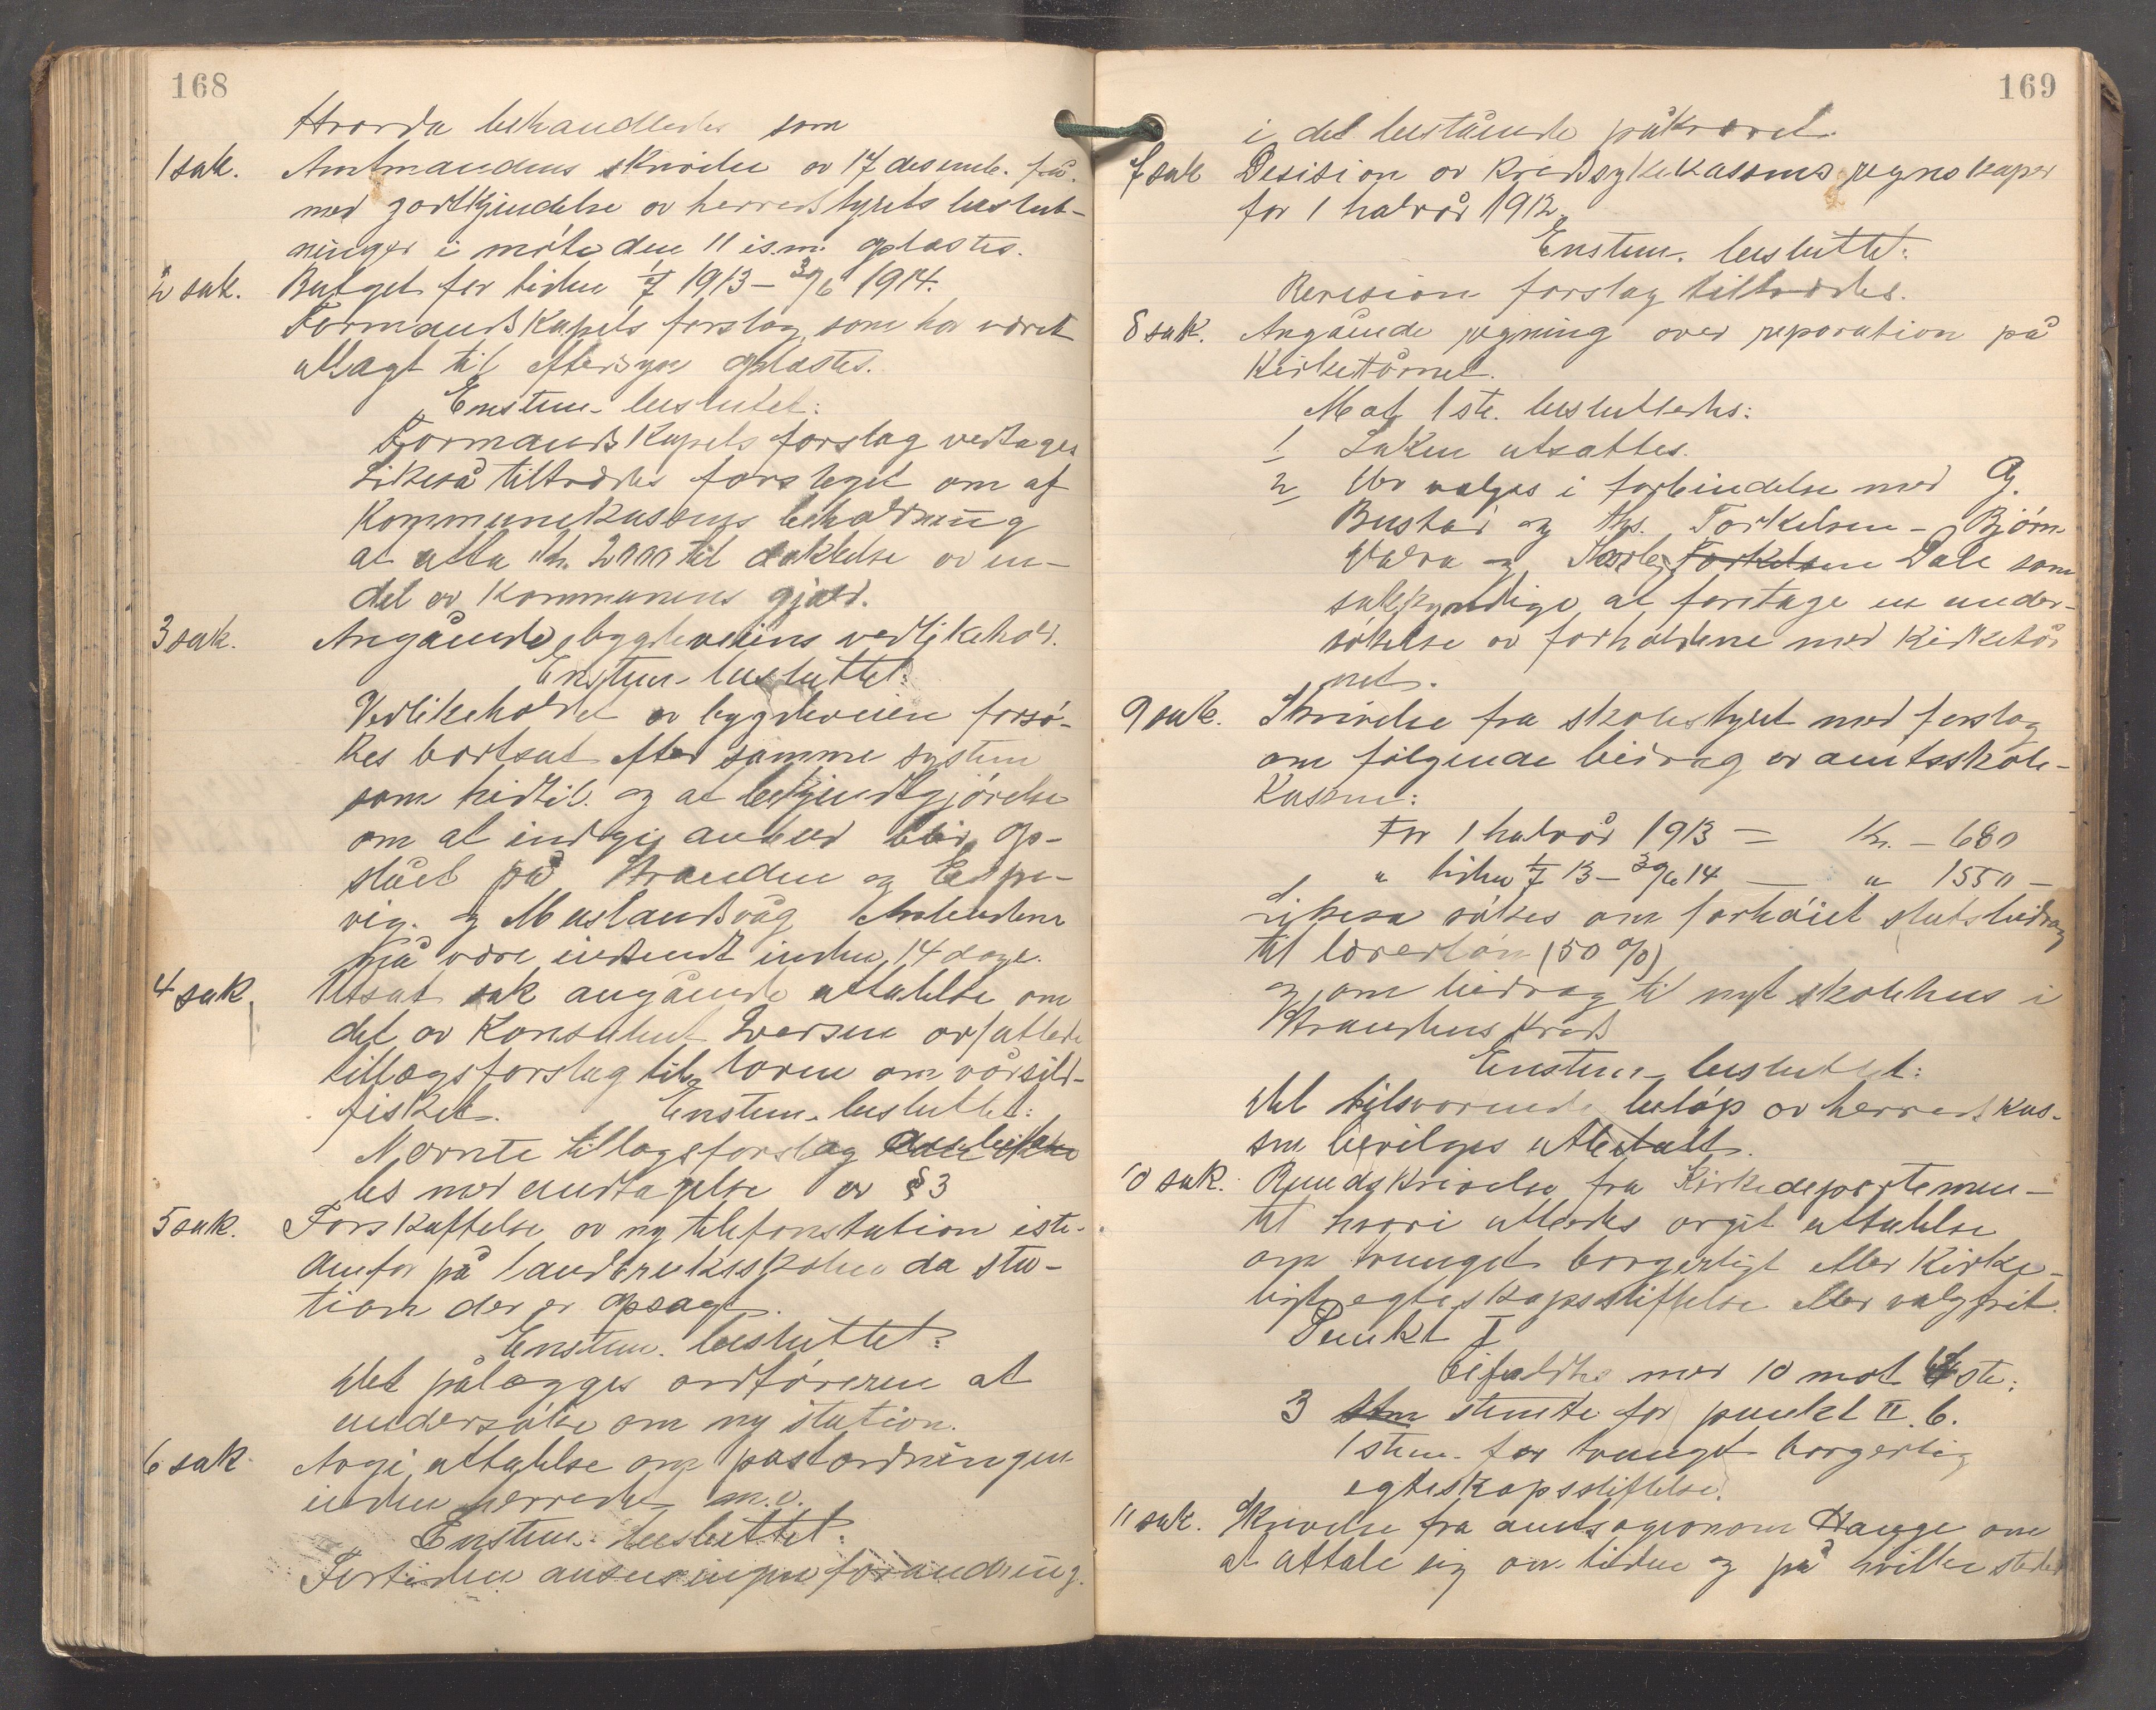 168
Hvorda behandledes som
1 sak. Amtmandens skrivelse av 17 desemb. f.å.
med godkjendelse av herredstyrets beslut-
ninger i møte den 11 s.m. oplæstes.
2 sak. Budget for tiden 1/7 1913 - 30/6 1914.
Formandskapets forslag som har været
utlagt til eftersyn oplæstes.
Enstem. besluttet:
Formandskapets forslag vedtages
Likeså tiltrædes forslaget om af
kommunekassens beholdning
at utta kr. 2000 til dækkelse av en
del av kommunens gjæld.
3 sak. Angående bygdeveiens vedlikehold.
Enstem. besluttet:
Vedlikeholdet av bygdeveien forsø-
kes bortsat efter samme system
som hidtil. og at bekjendtgjørelse
om at indgi anbud blir op-
slået på Stranden og Espe-
vig. og Møuslandsvåg Anbudene
må være indsendt inden 14 dage.
4 sak. Utsat sak angående uttalelse om
det av konsulent Iversen avfattede
tillægsforslag til loven om vårsild-
fisket. Enstem. besluttet:
Nævnte tillægsforslag
les med undtagelse av § 3
5 sak. Forskaffelse av ny telefonstation iste-
denfor på landbruksskolen da sta-
tion der er opsagt.
Enstem. besluttet:
Det pålægges ordføreren at
undersøke om ny station.
6 sak. Avgi uttalelse om postordningen
inden herredet m.v.
Enstem. besluttet:
For tiden ansees ingen forandring
169
i det bestående påkrævet.
7 sak Desision av kredssykekassens regnskaper
for 1 halvår 1912.
Enstem. besluttet:
Revision forslag tiltrædes.
8 sak. Angående regning over reparation på
Kirketårnet.
Mot 1 ste. besluttedes:
1 Saken utsattes.
2 Der vælges i forbindelse med G.
Bustad og Ths. Torkelsen - Bjørn
Valva og Torkelsen Dale som
sakkyndige at foretage en under-
søkelse av forholdene med Kirketår
net.
9 sak. Skrivelse fra skolestyret med forslag
om følgende bidrag av amtsskole-
kassen:
For 1 halvår 1913 — Kr. - 680
" tiden 1/7 13 - 30/6 14 — " 1550 -
Likesa søkes om forhøiet statsbidrag
til lærerløn (50 %)
og om bidrag til nyt skolehus i
Strandens kreds
Enstem. besluttet:
Det tilsvarende beløp av herredskas-
sen bevilges utbetalt.
10 sak. Rundskrivelse fra Kirkedepartemen-
tet hvori utbedes avgit uttalelse
om tvunget borgerligt eller kirke-
ligt egteskapsstiftelse eller valgfrit.
Punkt I
bifaldtes med 10 mot 4 ste:
3 stm stemte for punkt II. b.
1 stem. for tvunget borgerlig
egteskapsstiftelse.
11 sak. Skrivelse fra amtsagronom Hauge om
at uttale sig om tiden og på hvilke steder